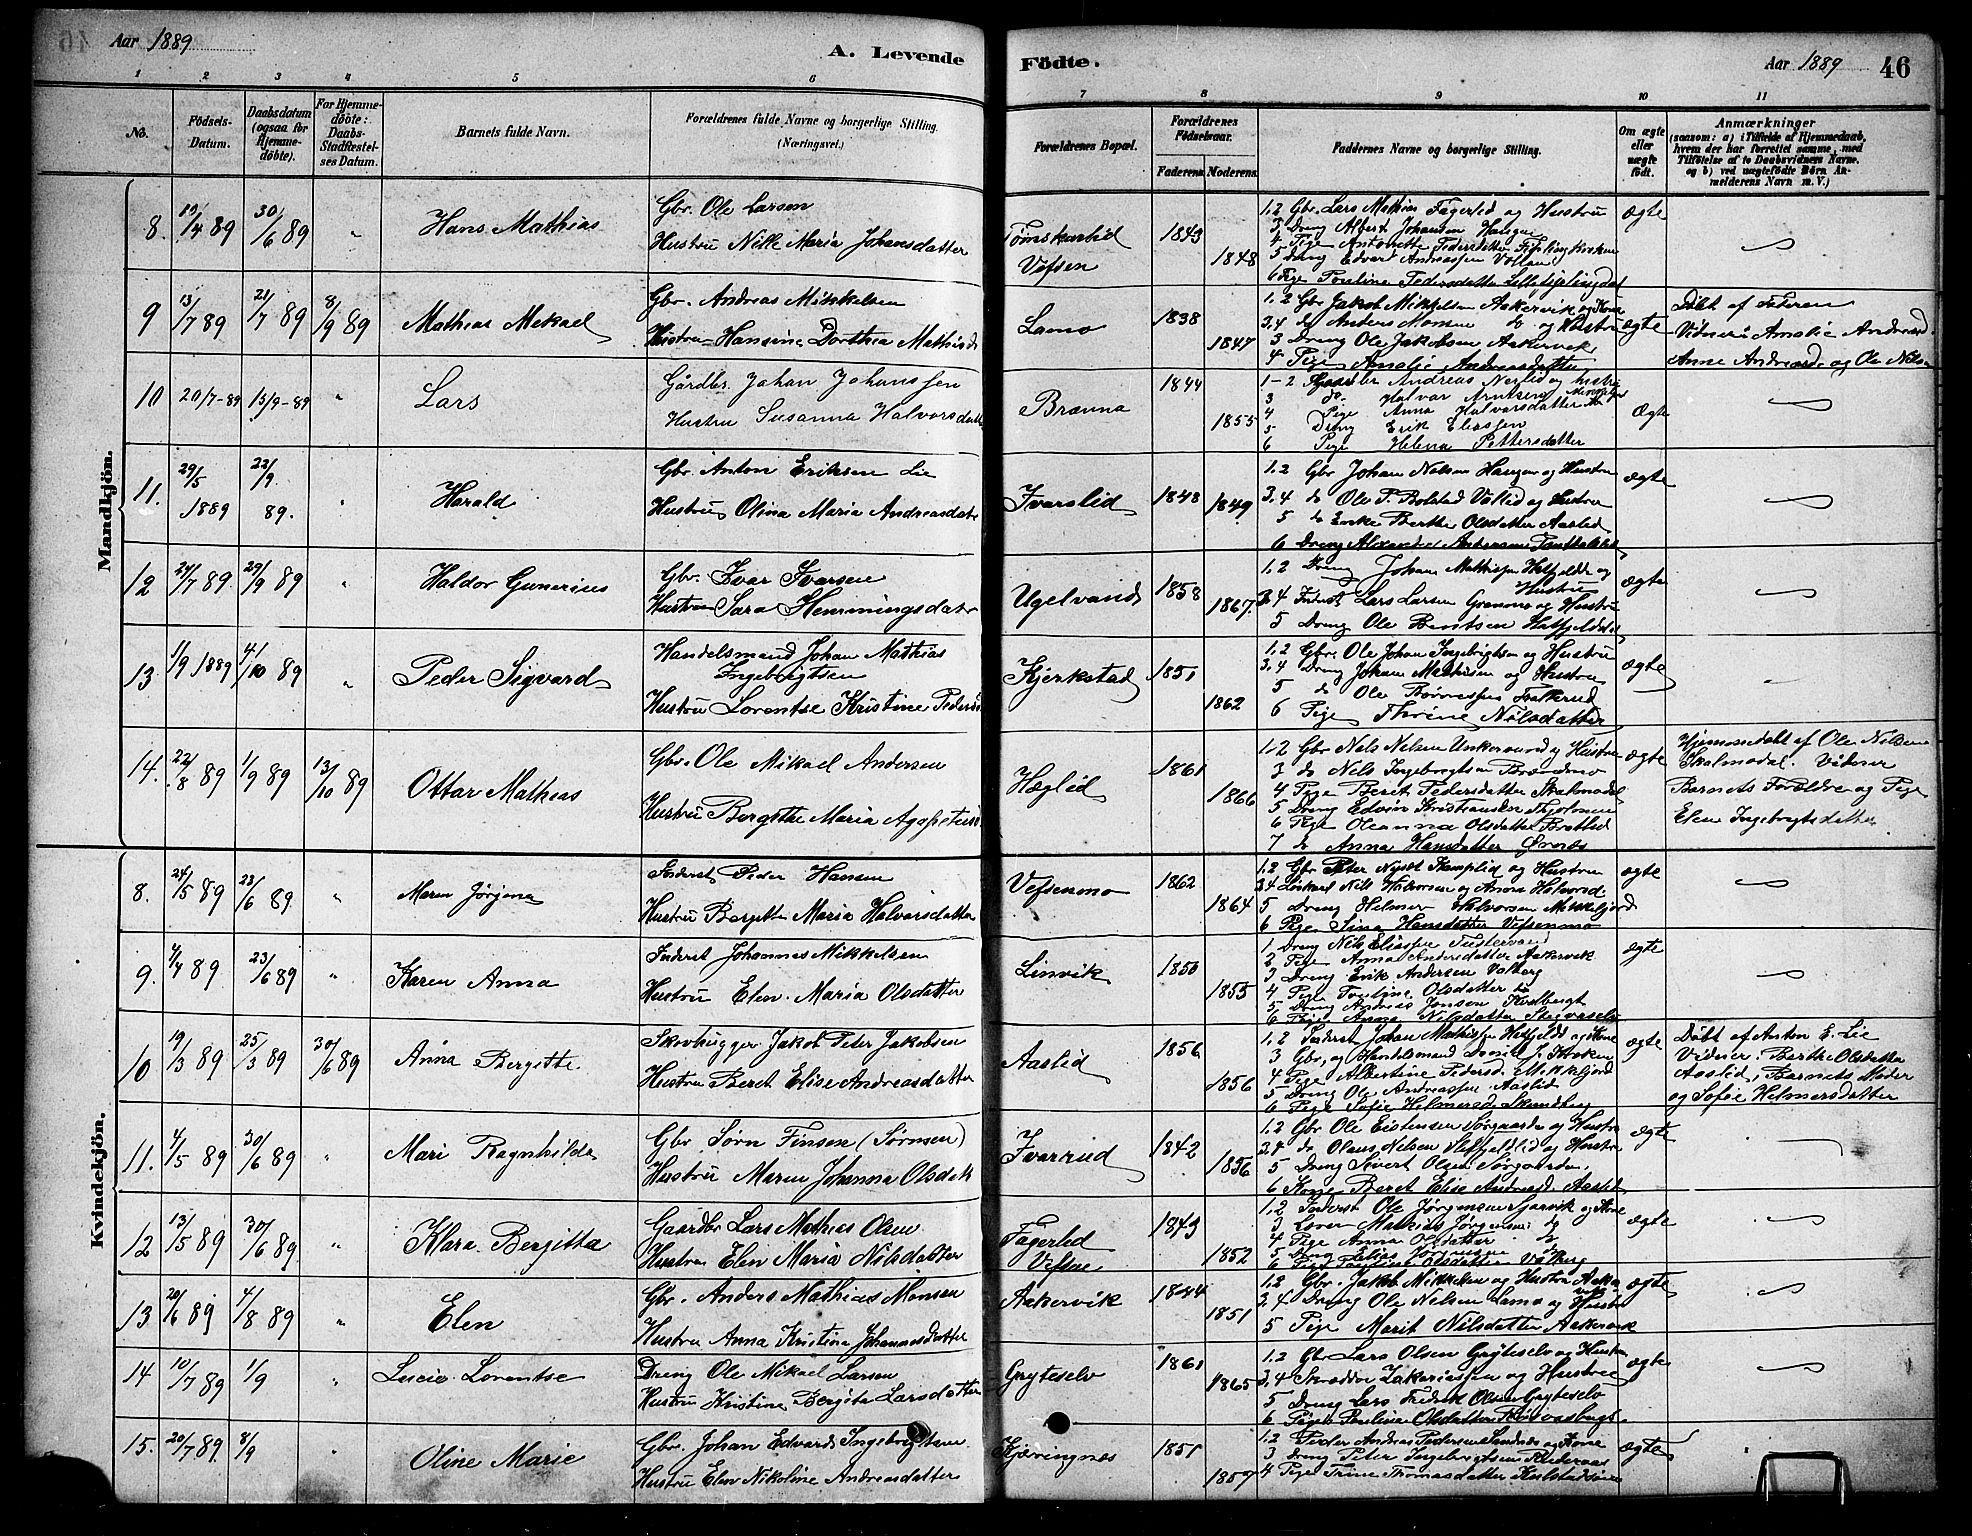 Aar 1889
A. Levende
Födte.
Aar 1889
46
1 2 3 4 5 6 7 8 9 10 11
No.
Födsels-Datum.
Daabsdatum (ogsaa for Hjemmedöbte).
For Hjemmedöbte: Daabs-Stadfæstelses Datum.
Barnets fulde Navn.
Forældrenes fulde Navne og borgerlige Stilling. (Næringsvei.)
Forældrenes Bopæl.
Forældrenes Födselsaar.
Faderens Moderens
Faddernes Navne og borgerlige Stilling.
Om ægte eller uægte født.
Anmærkninger
(saasom: a) i Tilfælde af Hjemmedaab, hvem der har forrettet samme, med Tilföielse af to Daabsvidners Navne, og b) ved uægtefödte Börn Anmelderens Navn m. V.)
Mandkjön.
8. 19/4 89 30/6 89 " Hans Mathias
Gbr. Ole Larsen
Hustru Nille Maria Johansdatter
Vefsen 1843 1848
1.2 Gbr. Lars Mathias Fagerlid og Hustru
3 Dreng Albert Johansen
ægte
9 13/7 89 21/7 89 8/9 89 Mathias Mekael
Gbr. Andreas Mikkelsen
Hustru Hansine Dorthea Mathisd
Lamo 1838 1847
1.2 Gbr Jakob Mikkelsen Aakervik og Kone
3.4 do Anders Monsen do og Hustru
3 Dreng Ole Jakobsen Aakervik
4 Pige Amalie Andreasdatter
ægte
Døbt af Faderen
Vidner: Amalie Andreasd.
Anne Andreasd. og Ole Nils
10 20/7-89 15/9-89 " Lars
Gårdbr. Johan Johanssen
Hustru Susanna Halvorsdatter
Brænna 1844 1855
1-2 Gaardbr Andreas Nerlid og hustru
3 do. Halvar Arntsen
4 Pige Anna Halvarsdatter
5 Dreng Erik Eliassen
6 Pige Helena Pettersdatter
Ægte
11. 29/5 1889 22/9 89. " Harald
Gbr. Anton Eriksen Lie
Hustru Olina Maria Andreasdatr
Ivarslid 1848 1849
1.2 Gbr Johan Nelsen Haugen og Hustru
3.4 do Ole P. Bolstad Vollid og Hustru
5 do Enke Berthe Olsdatter Aaslid
6 Dreng Alexander Andersen
ægte
12 27/7 89. 29/9 89 " Haldor Gunerius
Gbr. Ivar Ivarsen
Hustru Sara Hemmingsdatr
Ugelvand 1858 1867
1.2 Dreng Johan Mathisen Hatfjelddl og Hustru
3.4 Inderst Lars Larsen Granmo og Hustru
5 Dreng Ole Bentsen Hatfjelddal
ægte
13 1/9 1889 4/10 89 " Peder Sigvard
Handelsmand Johan Mathias Ingebrigtsen
Hustru Lorentse Kristine Pedersd
Kjerkstad 1851 1862
1.2 Gbr. Ole Johan Ingebrigtsen og Hustru
3.4 Dreng Johan Mathisen og Hustru
6 Pige Thrine Nilsdatter
ægte
14. 22/8 89 1/9 89 13/10 89 Ottar Mathias
Gbr. Ole Mikael Andersen
Hustru Bergitthe Maria Agapetusd
Hæglid 1861 1866
1-2 Gbr Nels Nelsen Unkervand og Hustru
3 do Nels Ingebregtsen Brændmo
4 Pige Berit Pedersdatter Skalmodal
5 Dreng Edvin Kristiansen
6 Pige Oleanna Olsdatter Brattlid
7 do Anna Hansdatter Ørnæs
ægte
Hjemmedøbt af Ole Nilsen
Skalmodal. Vidner
Barnets Forældre og Pige
Elen Ingebrigtsdatter
Kvindekjön.
8. 24/5 89 23/6 89 " Maren Jørgine
Inderst Peder Hansen
Hustru Bergitte Maria Halvorsdatter
Vefsenmo 1862 1864
5 Dreng Helmer Halvorsen Mikkeljord
6 Pige Sina Hansdatter Vefsenmo
ægte
9. 7/4 89 23/6 89 " Karen Anna
Inderst Johannes Mikkelsen
Hustru Elen Maria Olsdatter
Linvik 1850 1855
1 Dreng Nils Eliassen Tustervand
2 Pige Anna Andersdatter Aakervik
3 Dreng Erik Andersen
4 Pige Pauline Olsdatter do
5 Dreng Andreas Jonsen
6 Pige Anna Nilsdatter
ægte
10 19/3 89 25/3 89 30/6 89 Anna Bergitte
Skovhugger Jakob Peter Jakobsen
Hustru Beret Elise Andreasdatter
Aaslid 1856 1856
1.2 Inderst Johan Mathisen Hatfjeldd og Kone
3 Gbr. og Handelsmand Daniel J. Kroken
4 Pige Albertine Pedersd. Mikkeljord
5 Dreng Ole Andreassen Aaslid
6 Pige Sofie Helmersd.
ægte
Døbt af Anton E. Lie
Vidner: Berthe Olsdatter
Aaslid, Barnets Moder
og Sofie Helmersdatter
11. 4/5 89 30/6 89 " Mari Ragnhilda
Gbr Sørn Finsen (Sørnsen)
Hustru Maren Johanna Olsdatr
Ivarrud 1842 1856
1.2 Gbr Ole Eistensen Sørgaarden og Hustru
3.4 do Olaus Nelsen og Hustru
5 Dreng Sivert Olsen Sørgaarden.
6 Kone Beret Elise Andreasd. Aaslid
ægte
12 13/5 89 30/6 89 " Klara Bergitta
Gaardbr Lars Mathias Olsen
Hustru Elen Maria Nilsdatter
Fagerlid Vefsen 1843 1852
1.2 Inderst Ole Jørgensen og Kone
3 Mathias Jørgensen do
4 Pige Anna Olsdatter do
ægte
13 20/6 89 4/8 89 " Elen
Gbr. Anders Mathias Monsen
Hustru Anna Kristina Johannesdatter
Aakervik 1844 1851
1.2 Gbr. Jakob Mikkelsen og Hustru Aakervik
3.4 Dreng Ole Nelsen Lamo og Hustru
5 Pige Marit Nilsdatter Aakervik
ægte
14 10/7 89 1/9 " Lucie Lorentse
Dreng Ole Mikael Larsen
Hustru Kristine Bergite Larsdatter
Gryteselv 1861 1865
1.2 Gbr Lars Olsen Gryteselv og Hustru
3.4 Skrædder Zakariassen og Hustru
5 Dreng Lars Fredrik Olsen Gryteselv
6 Pige Paulina Olsdatter
ægte
15. 20/7 89 8/9 " Oline Marie
Gbr. Johan Edvard Ingebrigtsen
Hustru Elen Nikoline Andreasdatter
Kjæringnes 1851 1857
1.2 Peder Andreas Pedersen Sandnes og Kone
3 Dreng Peter Ingebrigtsen
4 Pige Trine Thomasdatter
ægte